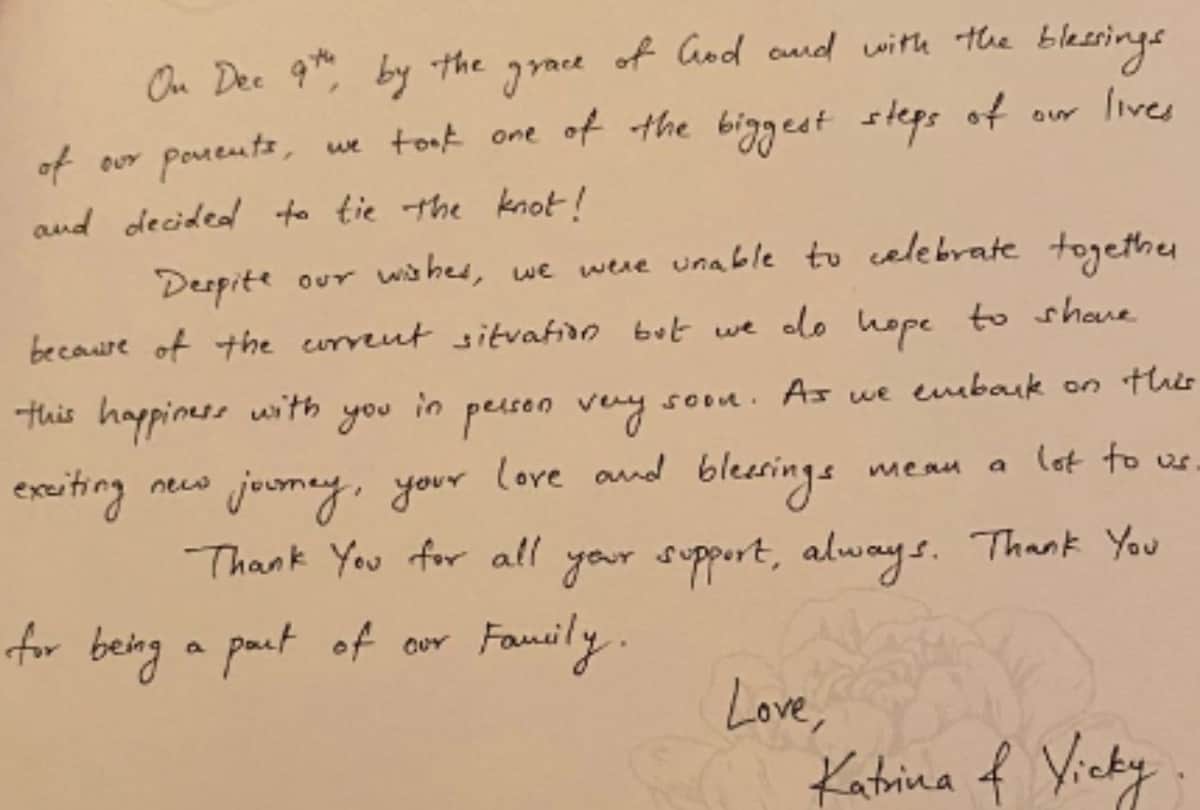 On Dec 9th, by the grace of God and with the blessings
of our parents, we took one of the biggest steps of our lives
and decided to tie the knot!
Despite our wishes, we were unable to celebrate together
because of the current situation but we do hope to share
this happiness with you in person very soon. As we embark on this
exciting new journey, your love and blessings mean a lot to us.
Thank You for all your support, always. Thank You
for being a part of our Family.
Love,
Katrina & Vicky.